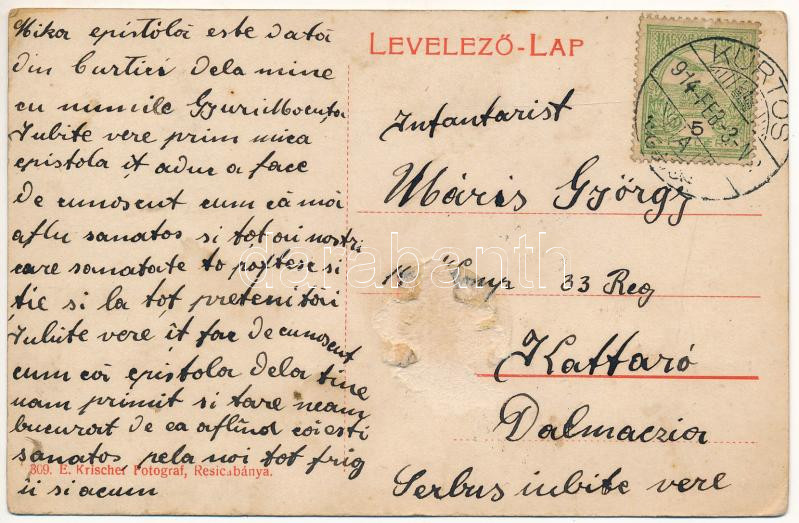 Mika epistolă este dată
din Curtici dela mine
cu numile Gyuri
Iubite vere prim mica
epistola iț aduc a face
de cunoscut cum că măi
aflu sanatos si toț ai nostri
care sanatate to poftesc si
tie si la toț pretenitori
Iubite vere iț fac de cunoscut
cum că epistola dela tine
nam primit si tare neam
bucurat de ea aflînd că esti
sanatos pela noi tot frig
îi si acum
309. E. Krischer Fotograf, Resicabánya.
LEVELEZŐ-LAP
Infantarist
Máris György
16 Komp 33 Reg
Kattaró
Dalmaczia
Serbus iubite vere
KÜRTÖS
914 FEB
5
darabanth